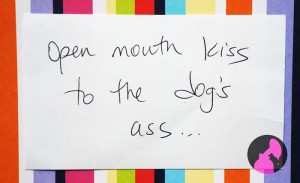 Open mouth kiss
to the dog's
ass...